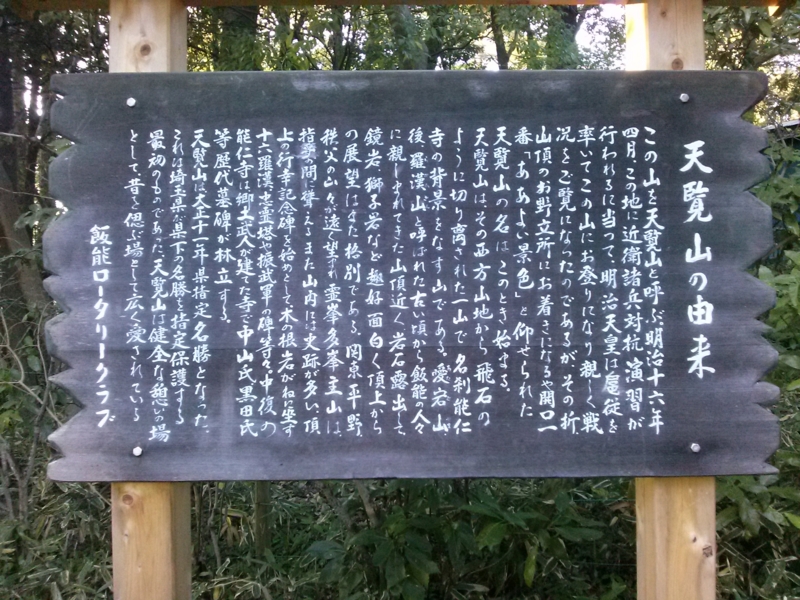 天覧山の由来
この山を天覧山と呼ぶ明治十六年
四月、この地に近衛諸兵対抗演習が
行われるに当って、明治天皇は扈従を
率いてこの山にお登りになり親しく戦
況をご覧になったのであるが、その折、
山頂のお野立所にお着きになるや開口一
番「ああよい景色」と仰せられた
天覧山の名はこのとき始まる。
天覧山は、その西方山地から飛石の
ように切り離された一山で、名刹能仁
寺の背景をなす山である。愛宕山、
後、羅漢山と呼ばれた古い頃から飯能の人々
に親しまれてきた山頂近く岩石露出して、
鏡岩、獅子岩など趣好面白く頂上から
の展望はまた格別である。関東の平野、
秩父の山々が遠望され霊峯多峯主山は、
指乎の間に聳えるまた山内には史跡が多い、頂
上の行幸記念碑を始めとして、木の根岩が根に坐す
十六羅漢、忠霊塔や振武軍の碑等々、中腹の
能仁寺は郷土武人が建てた寺で、中山氏、黒田氏
等歴代墓碑が林立する。
天覧山は大正十一年県指定名勝となった、
これは埼玉県が県下の名勝を指定保護する
最初のものであった、天覧山は健全な憩いの場
として、昔を偲ぶ場として広く愛されている
飯能ロータリークラブ